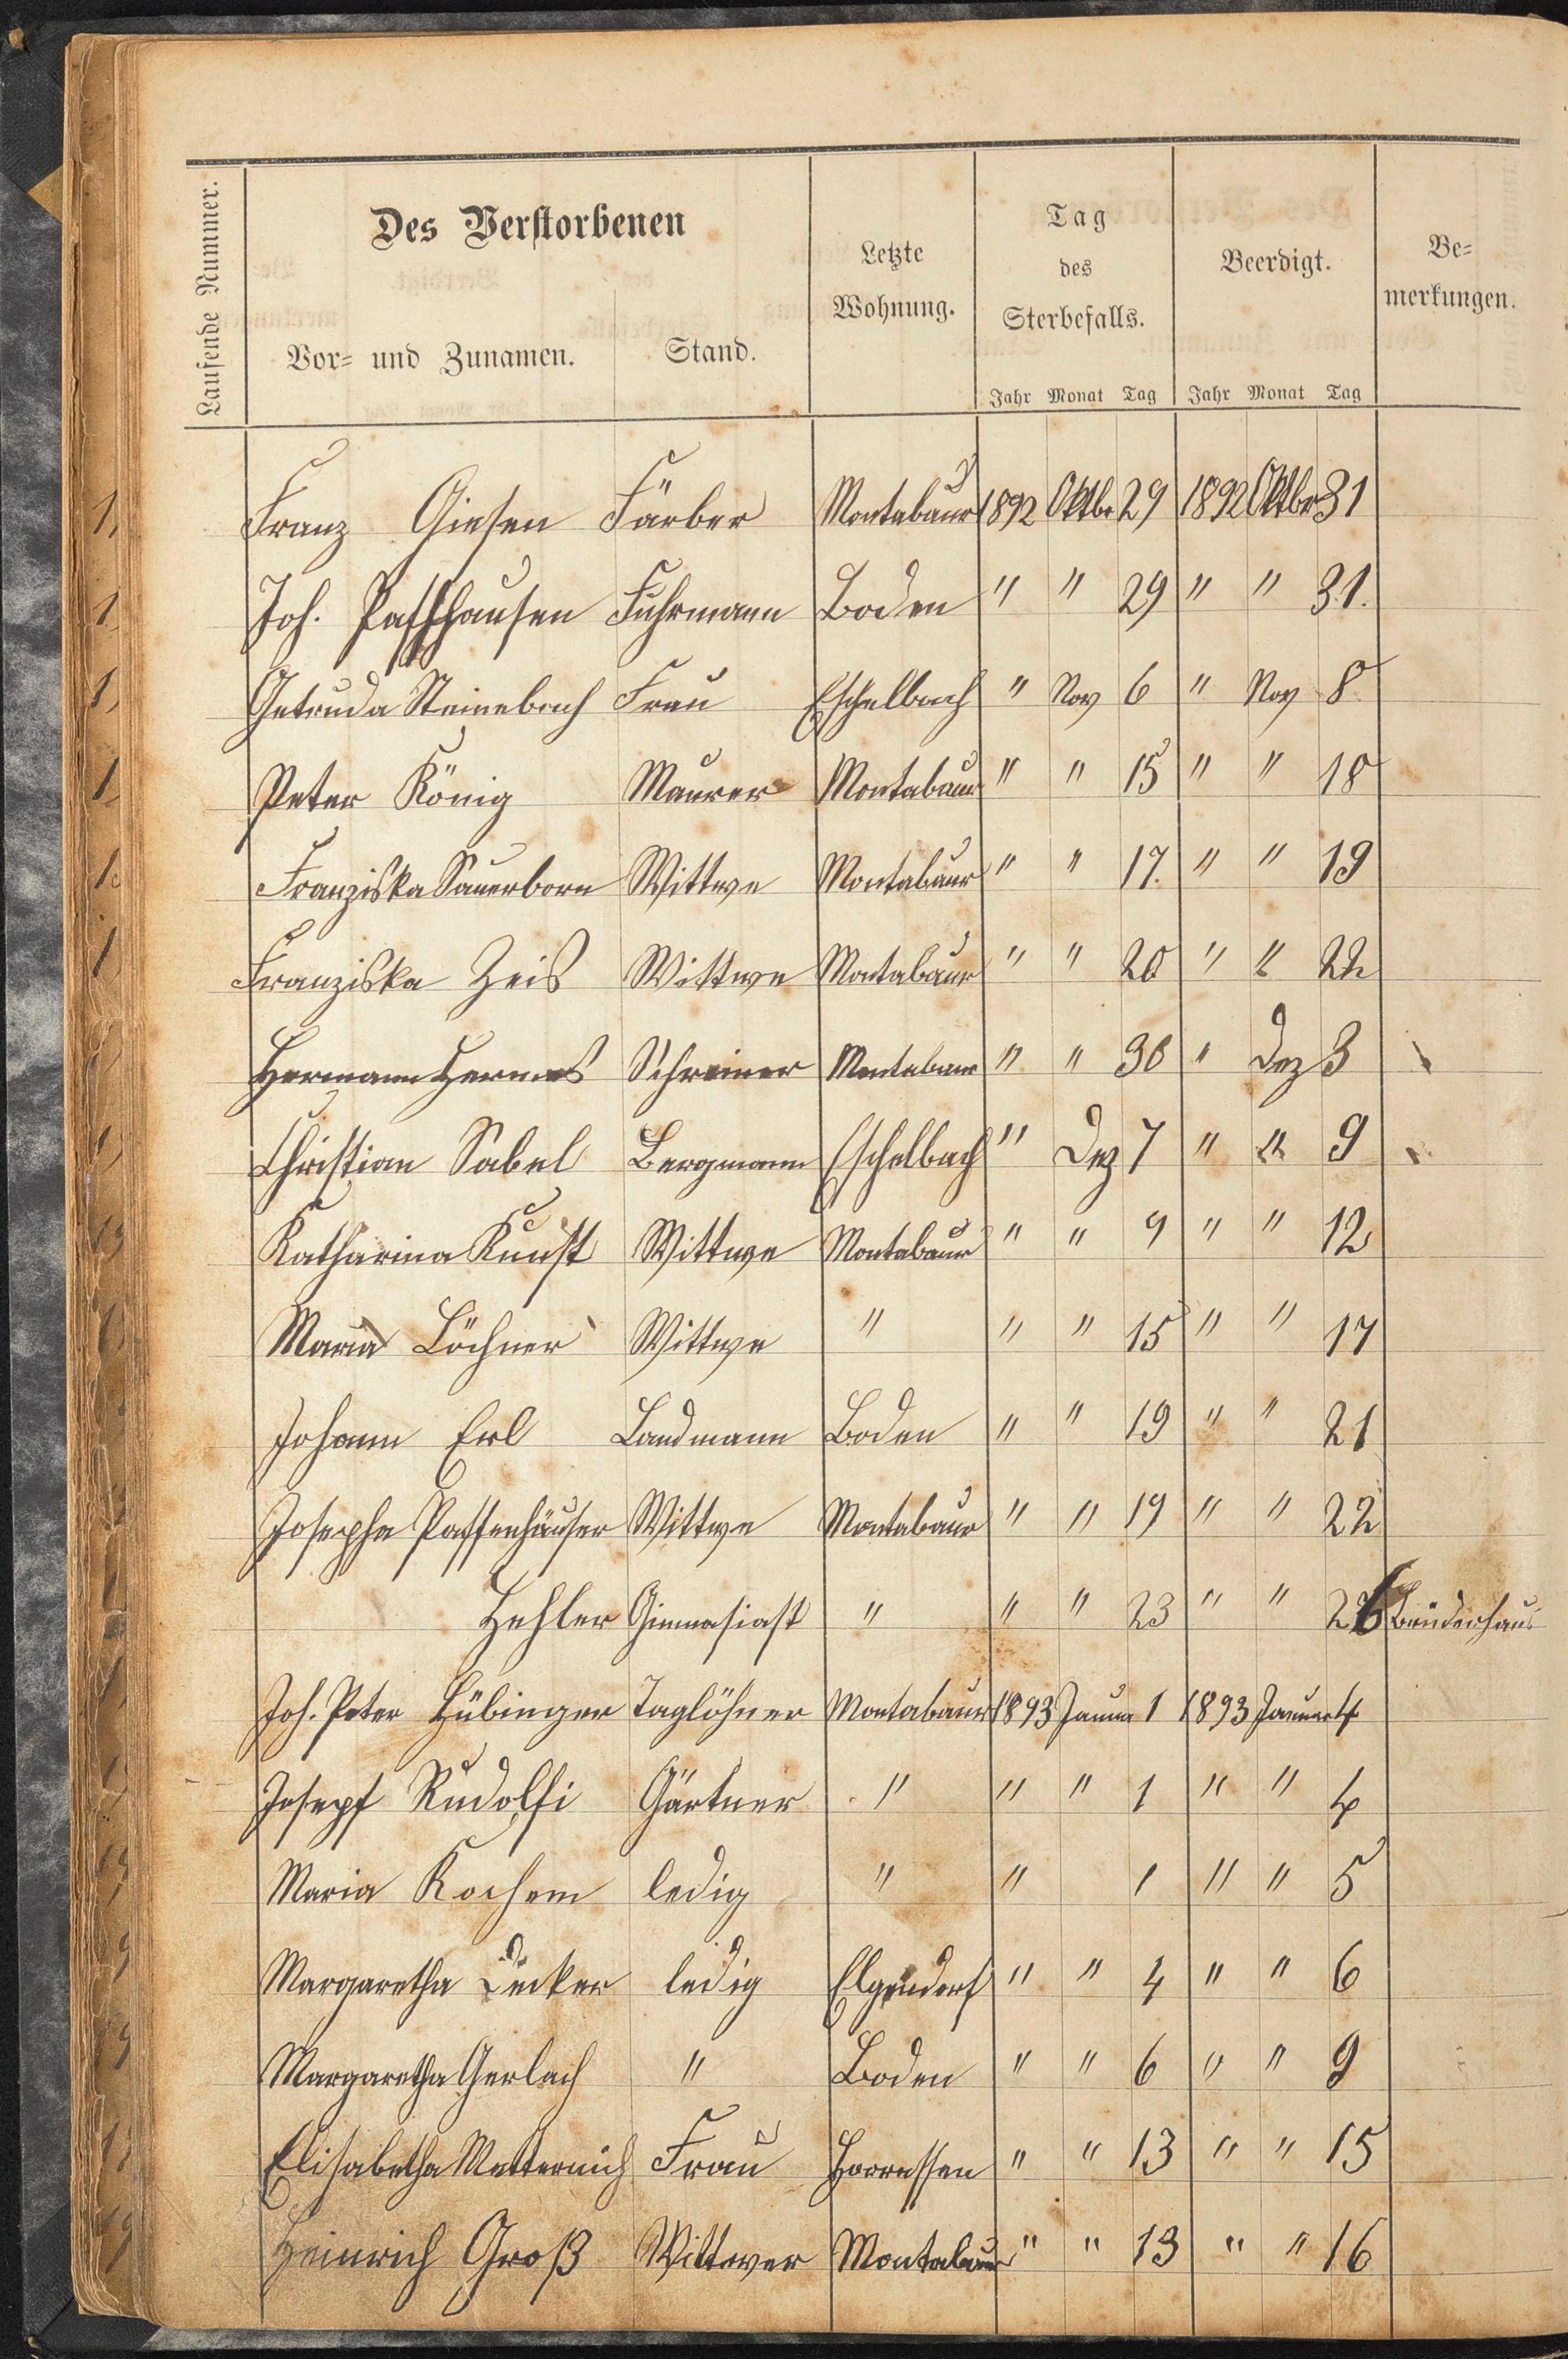 Laufende Nummer.
Des Verstorbenen
Vor- und Zunamen. Stand.
Letzte Wohnung.
Tag des Sterbefalls.
Beerdigt.
Be-merkungen.
Jahr Monat Tag Jahr Monat Tag
Franz Giesen Färber Montabaur 1892 Oktbr 29 1892 Oktbr 31
Joh. Paffhausen Fuhrmann Boden " " 29 " " 31.
Getruda Steinebach Frau Eschelbach " Nov 6 " Nov 8
Peter König Maurer Montabaur " " 15 " " 18
Franziska Sauerborn Wittwe Montabaur " " 17. " " 19
Franziska Zeis Wittwe Montabaur " " 20 " " 22
Hermann Hermes Schreiner Montabaur " " 30 " Dez 3
Christian Sabel Bergmann Eschelbach " Dez 7 " " 9
Katharina Kunst Wittwe Montabaur " " 9 " " 12
Maria Löchner Wittwe " " " 15 " " 17
Johann Erl Landmann Boden " " 19 " " 21
Josepha Paffenhäuser Wittwe Montabaur " " 19 " " 22
Hehler Gimnasiast " " " 23 " " 26 Brüderhaus
Joh. Peter Hübinger Taglöhner Montabaur 1893 Januar 1 1893 Januar 4
Josepf Rudolfi Gärtner " " " 1 " " 4
Maria Kochem ledig " " 1 " " 5
Margaretha Decker ledig Elgendorf " " 4 " " 6
Margaretha Gerlach " Boden " " 6 " " 9
Elisabetha Metternich Frau Horressen " " 13 " " 15
Heinrich Groß Wittwer Montabaur " " 13 " " 16